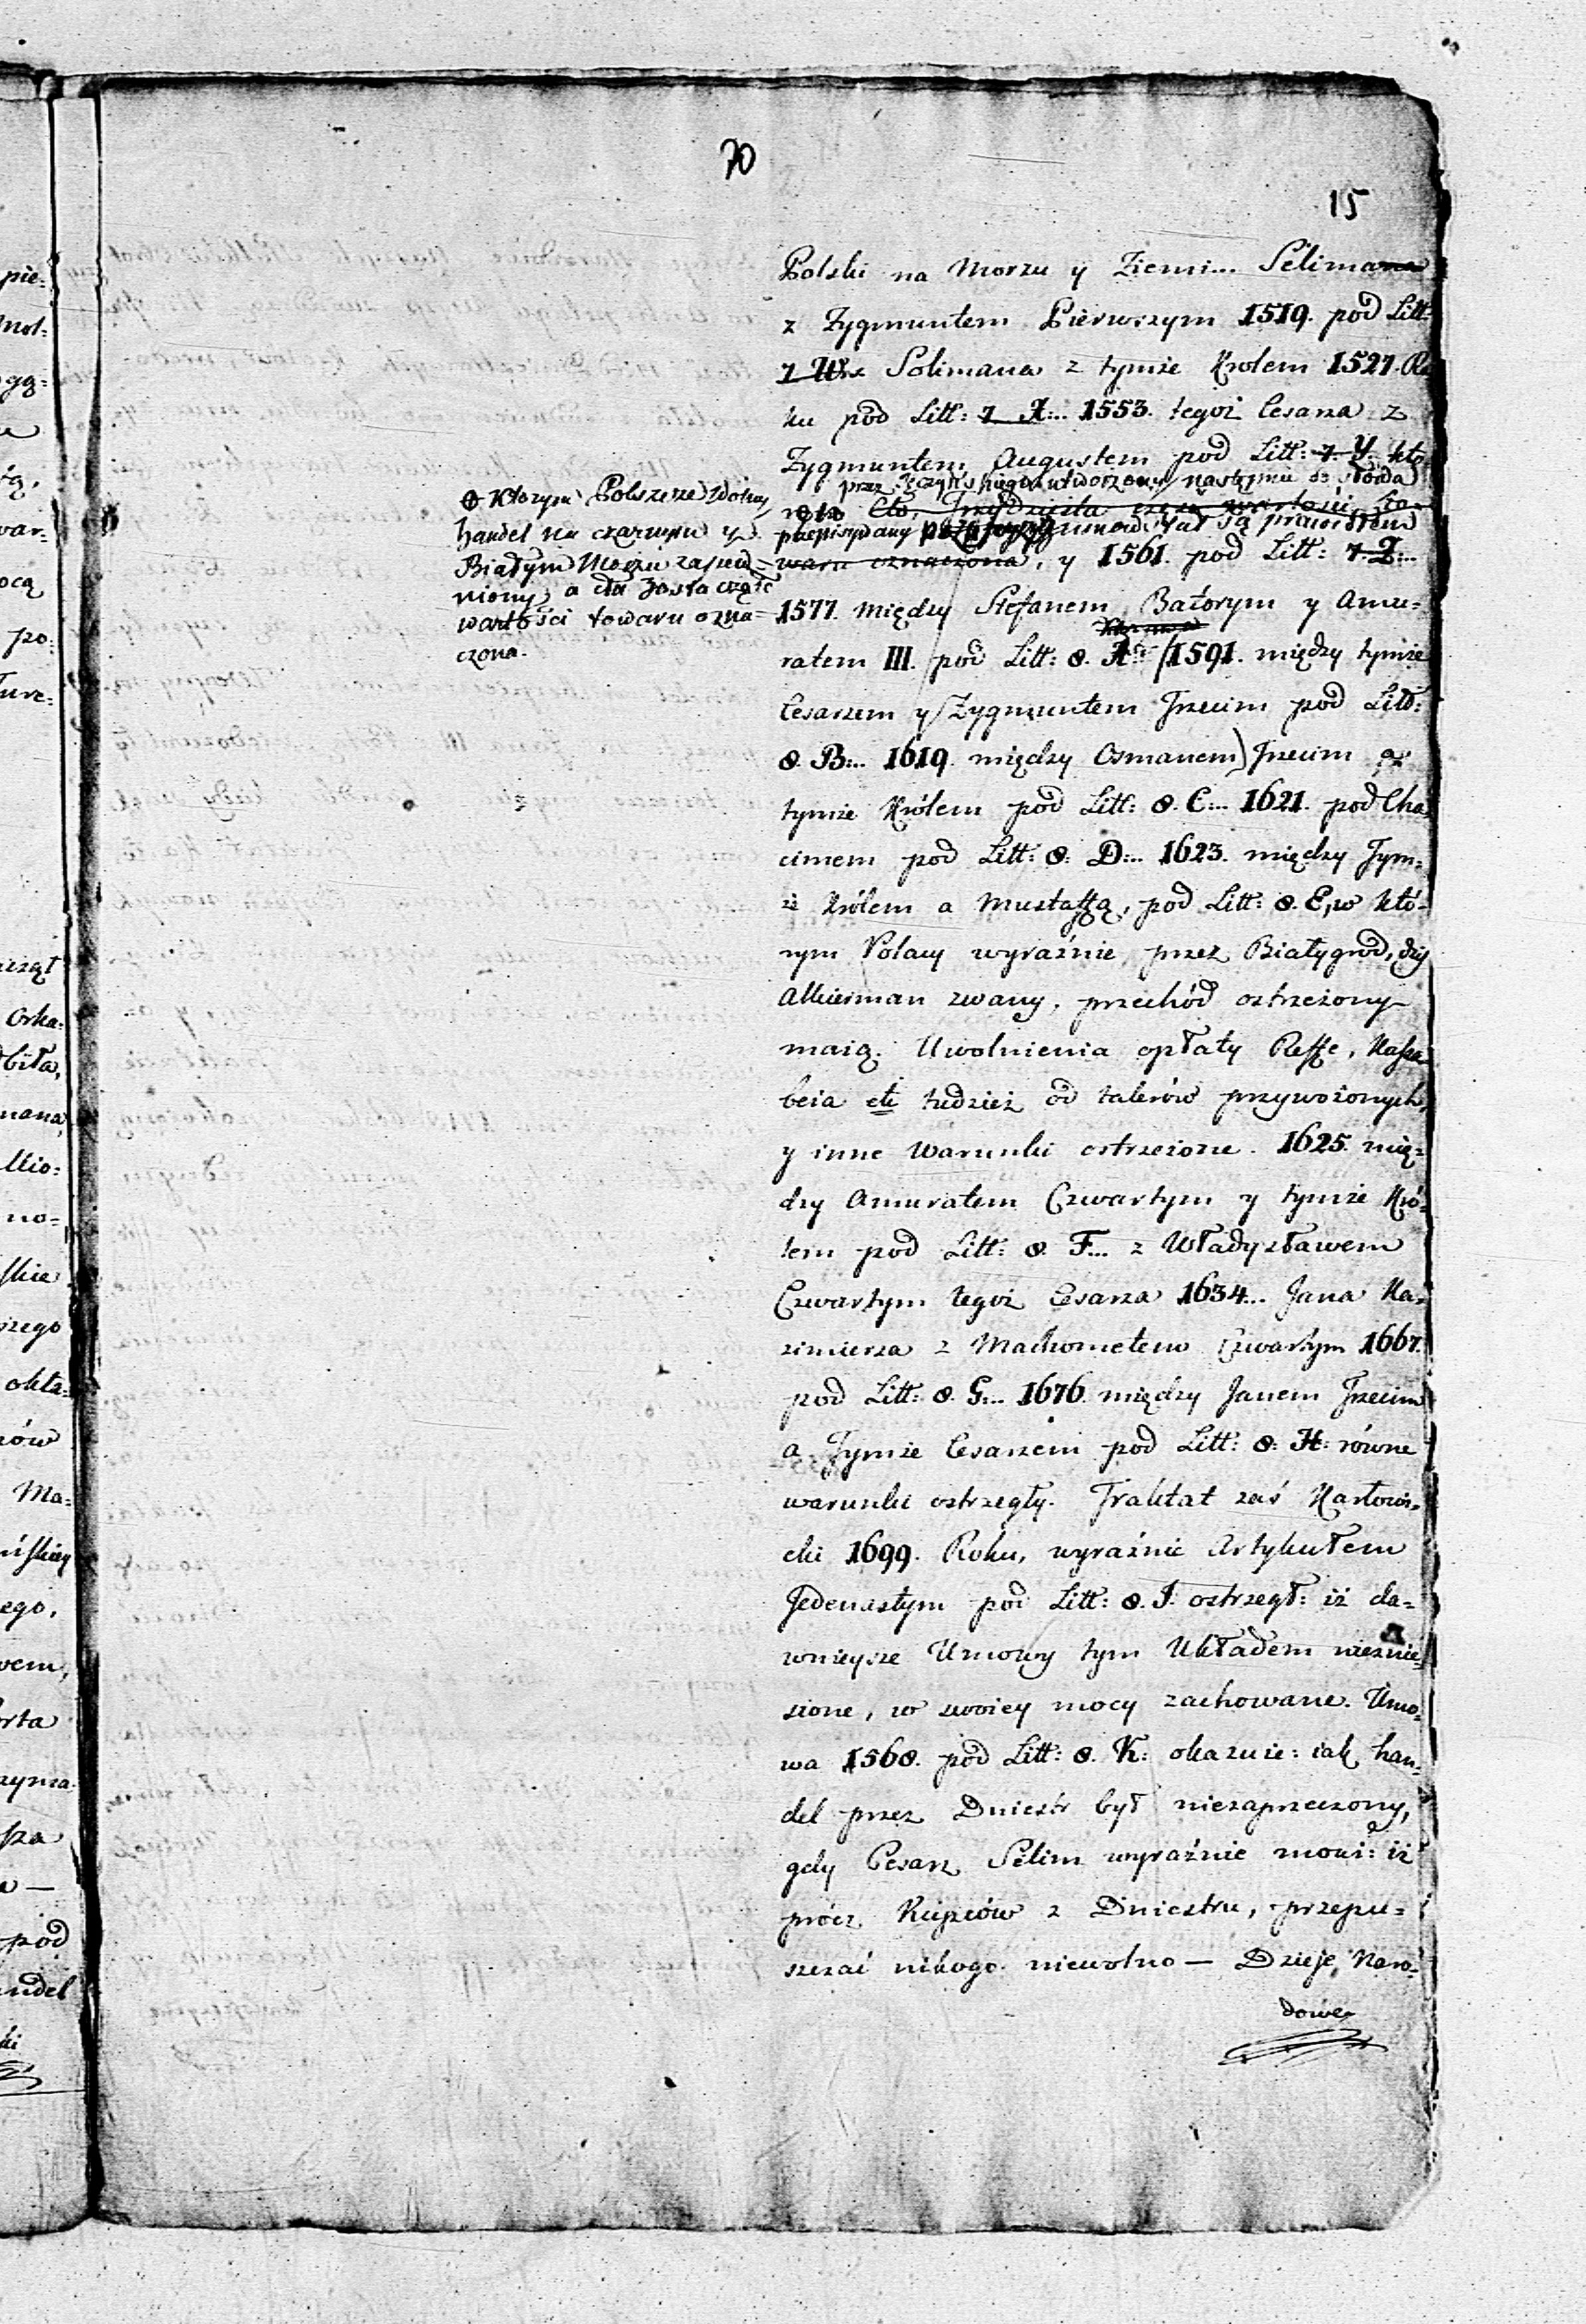 70
15
Polski na Morzu y Ziemi... Selimana
z Zygmuntem Pierwszym 1519. pod Litt:
7 W: Solimana z tymże Krolem 1527. Ro
ku pod Litt: 7 X:... 1553. tegoż Cesarza z
Zygmuntem Augustem pod Litt: 7. Y. któ
przez nastąpiła słowa
Cło, Trzydziesta część wartości To-
przepisany
waru oznaczona, y 1561. pod Litt: 7 Z:...
1577. między Stefanem Batorym y Amu-
ratem III. pod Litt: 8. A:... 1591. między tymże
Cesarzem y Zygmuntem Trzecim pod Litt:
8. B:... 1619. między Osmanem Trzecim a
tymże Królem pod Litt: 8. C:... 1621. pod Cho
cimem pod Litt: 8. D:... 1623. między Tym-
że Królem a Mustaffą, pod Litt: 8. E, w któ-
rym Polacy wyraźnie, przez Białygrod, dziś
Akkierman zwany, przechód ostrzeżony
maią. Uwolnienia opłaty Reffe, Kassa
beia etc tudzież od talerów przywożonych,
y inne Warunki ostrzeżone. 1625. mię-
dzy Amuratem Czwartym y tymże Kró-
lem pod Litt: 8. F... z Władysławem
Czwartym tegoż Cesarza 1634... Jana Ka-
zimierza z Machometem Czwartym 1667.
pod Litt: 8. G:... 1676. między Janem Trzecim
a Tymże Cesarzem pod Litt: 8: H: równe
warunki ostrzegły. Traktat zaś Karłowi-
cki 1699. Roku, wyraźnie Artykułem
Jedenastym pod Litt: 8. I: ostrzegł: iż da-
wnieysze Umowy tym Układem nieznie-
sione, w swoiey mocy zachowane. Umo-
wa 1568. pod Litt: 8. K: okazuie: iak han-
del przez Dniestr był niezaprzeczony,
gdy Cesarz Selim wyraźnie mowi: iż
prócz Kupców z Dniestru, przepu-
szczać nikogo niewolno — Dzieje Naro-
dowe
⊕ Ktorym Polszcze Wolny
handel na czarnym y
Białym Morzu zapew-
niony, a cła 30sta część
wartości towaru ozna-
czona.